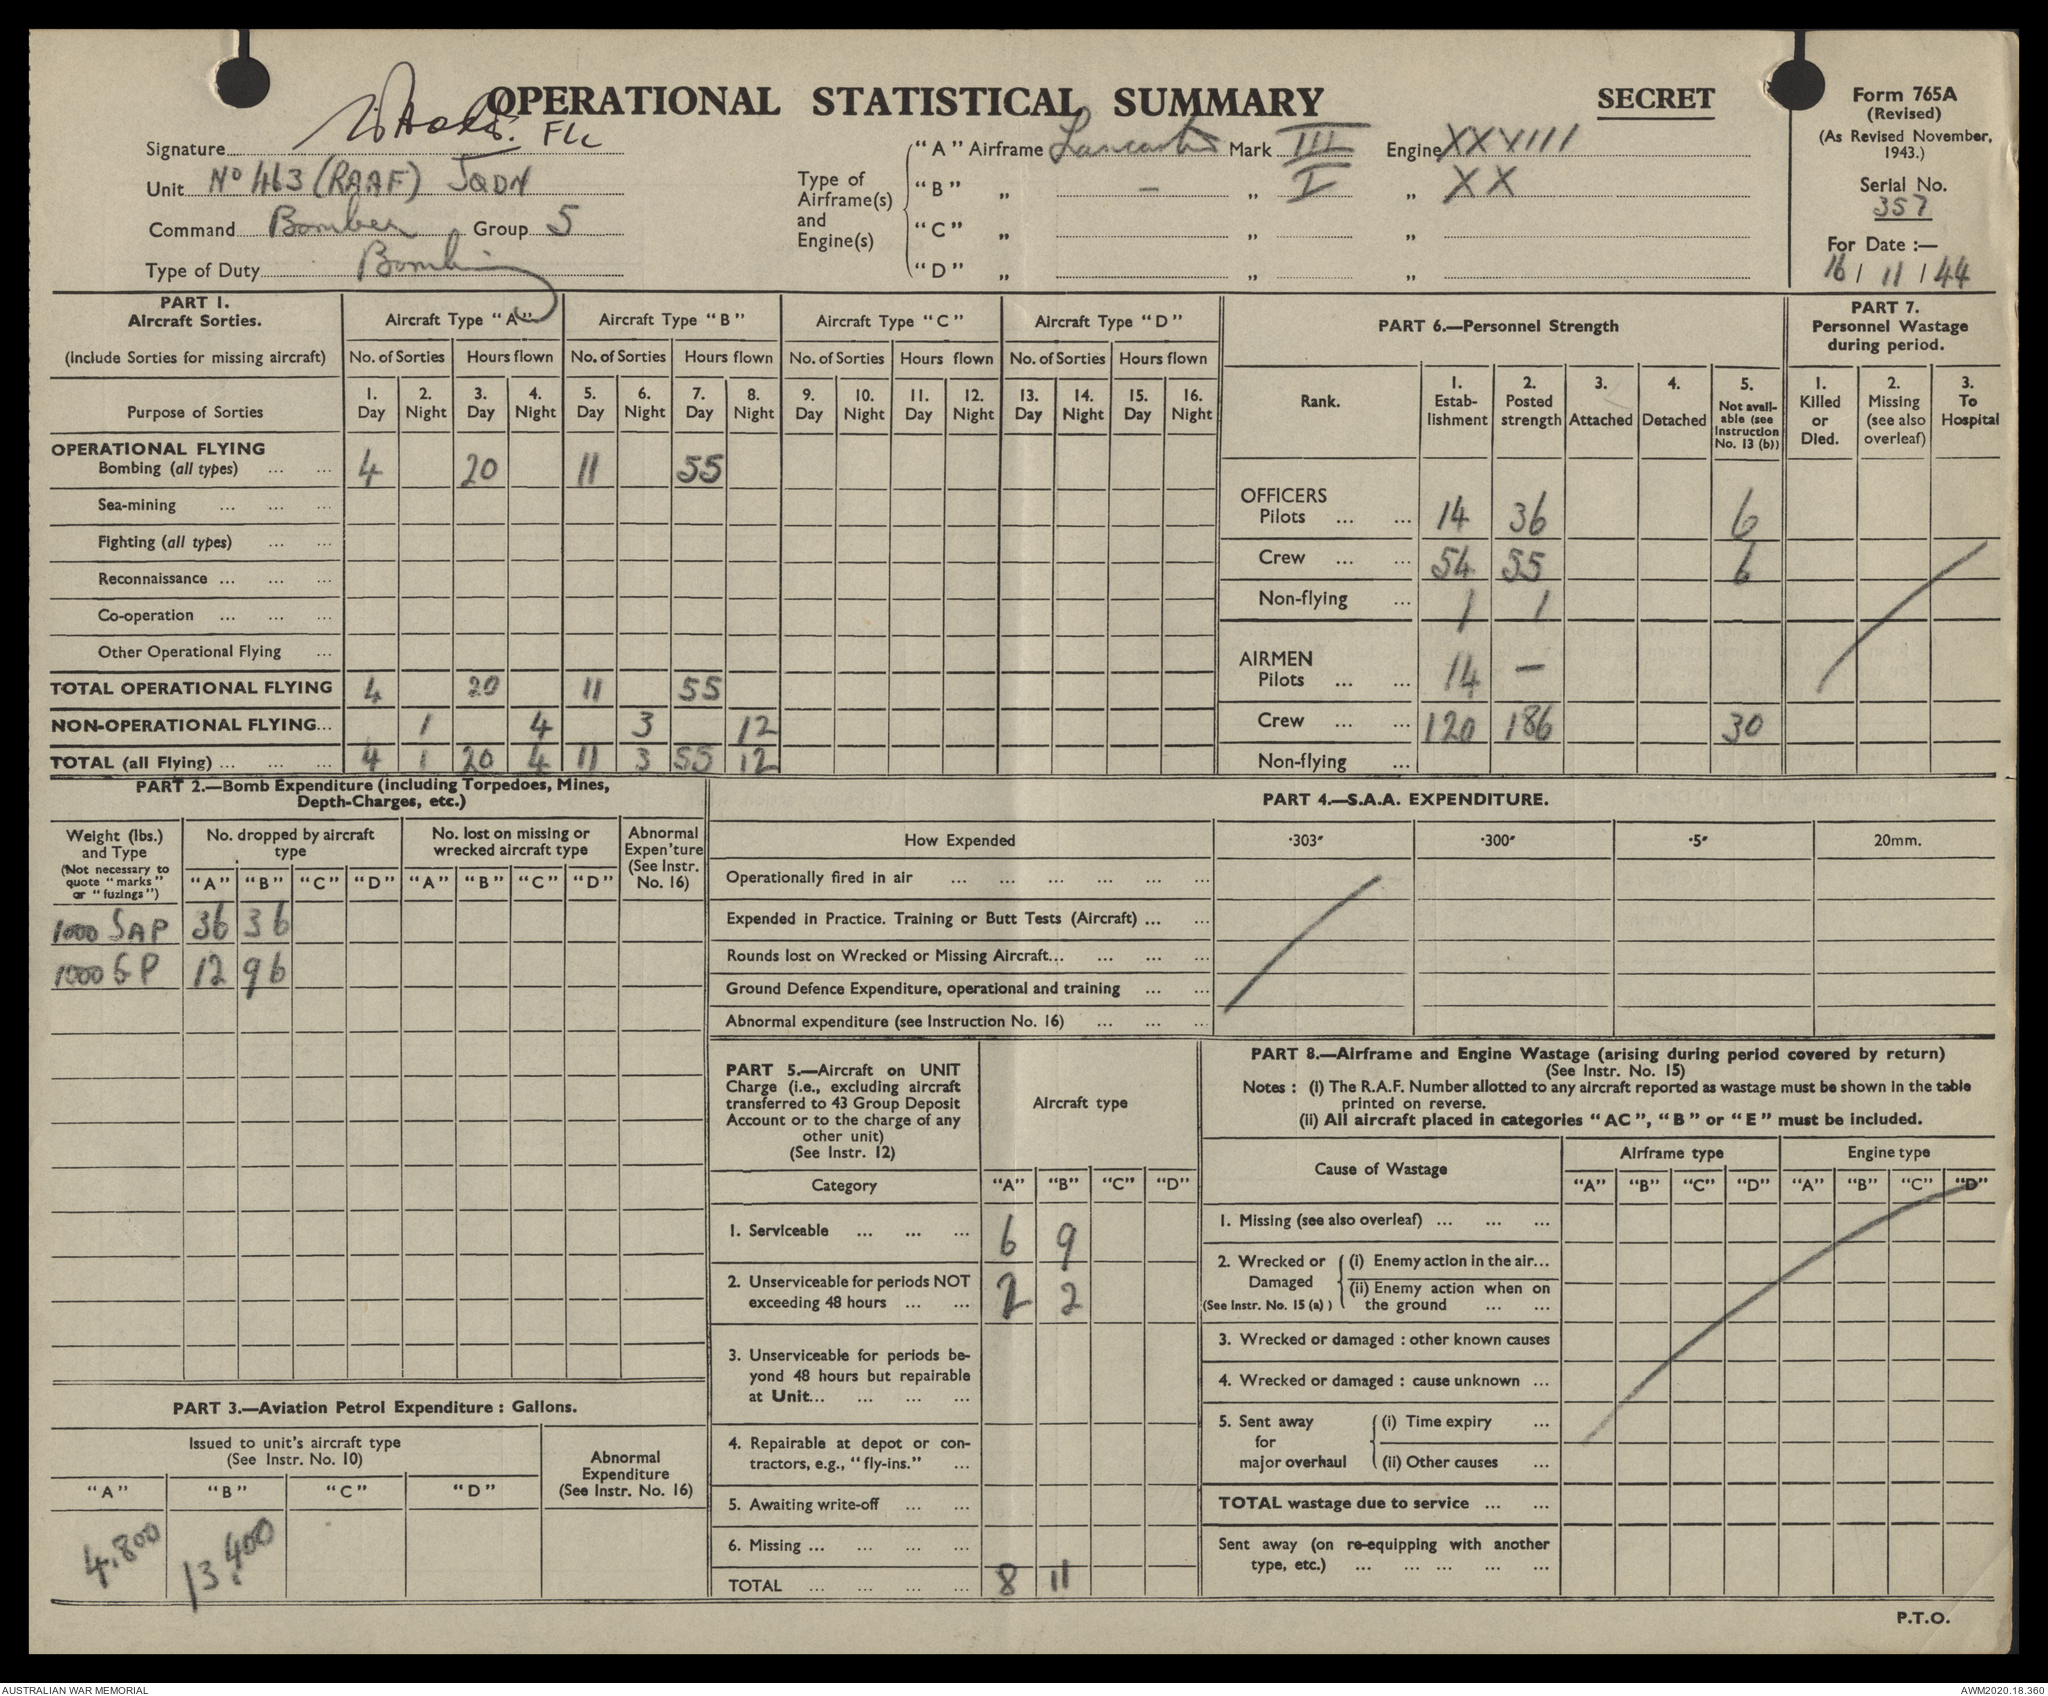 OPERATIONAL STATISTICAL SUMMARY
SECRET
Form 765A
(Revised)
(As Revised November,
1943.)
Serial No.
357
For Date :—
16 / 11 / 44
Signature
Unit No 463 (RAAF) SQDN
Command Bomber Group 5
Type of Duty Bombing
Type of
Airframe(s)
and
Engine(s)
"A" Airframe Lancaster Mark III Engine XXVIII
"B" „ — „ I „ XX
"C" „ „ „
"D" „ „ „
PART 1.
Aircraft Sorties.
(Include Sorties for missing aircraft)
Aircraft Type "A" Aircraft Type "B" Aircraft Type "C" Aircraft Type "D"
No. of Sorties Hours flown No. of Sorties Hours flown No. of Sorties Hours flown No. of Sorties Hours flown
Purpose of Sorties
1. 2. 3. 4. 5. 6. 7. 8. 9. 10. 11. 12. 13. 14. 15. 16.
Day Night Day Night Day Night Day Night Day Night Day Night Day Night Day Night
OPERATIONAL FLYING
Bombing (all types) ... ... 4 20 11 55
Sea-mining ... ... ...
Fighting (all types) ... ...
Reconnaissance ... ... ...
Co-operation ... ... ...
Other Operational Flying ...
TOTAL OPERATIONAL FLYING 4 20 11 55
NON-OPERATIONAL FLYING... 1 4 3 12
TOTAL (all Flying) ... ... ... 4 1 20 4 11 3 55 12
PART 6.—Personnel Strength
Rank.
1. Estab-lishment
2. Posted strength
3. Attached
4. Detached
5. Not avail-able (see Instruction No. 13 (b))
OFFICERS
Pilots ... ... 14 36 6
Crew ... ... 54 55 6
Non-flying ... 1 1
AIRMEN
Pilots ... ... 14 —
Crew ... ... 120 186 30
Non-flying ...
PART 7.
Personnel Wastage
during period.
1. Killed or Died.
2. Missing (see also overleaf)
3. To Hospital
PART 2.—Bomb Expenditure (including Torpedoes, Mines,
Depth-Charges, etc.)
Weight (lbs.)
and Type
(Not necessary to
quote "marks"
or "fuzings")
No. dropped by aircraft
type
No. lost on missing or
wrecked aircraft type
Abnormal
Expen'ture
(See Instr.
No. 16)
"A" "B" "C" "D" "A" "B" "C" "D"
1000 SAP 36 36
1000 GP 12 96
PART 4.—S.A.A. EXPENDITURE.
How Expended ·303" ·300" ·5" 20mm.
Operationally fired in air ... ... ... ... ... ...
Expended in Practice. Training or Butt Tests (Aircraft) ... ...
Rounds lost on Wrecked or Missing Aircraft... ... ... ...
Ground Defence Expenditure, operational and training ... ...
Abnormal expenditure (see Instruction No. 16) ... ... ...
PART 3.—Aviation Petrol Expenditure : Gallons.
Issued to unit's aircraft type
(See Instr. No. 10)
Abnormal
Expenditure
(See Instr. No. 16)
"A" "B" "C" "D"
4.800 13.400
PART 5.—Aircraft on UNIT
Charge (i.e., excluding aircraft
transferred to 43 Group Deposit
Account or to the charge of any
other unit)
(See Instr. 12)
Aircraft type
Category "A" "B" "C" "D"
1. Serviceable ... ... ... 6 9
2. Unserviceable for periods NOT
exceeding 48 hours ... ... 2 2
3. Unserviceable for periods be-
yond 48 hours but repairable
at Unit... ... ... ...
4. Repairable at depot or con-
tractors, e.g., "fly-ins." ...
5. Awaiting write-off ... ...
6. Missing ... ... ... ...
TOTAL ... ... ... ... 8 11
PART 8.—Airframe and Engine Wastage (arising during period covered by return)
(See Instr. No. 15)
Notes : (i) The R.A.F. Number allotted to any aircraft reported as wastage must be shown in the table
printed on reverse.
(ii) All aircraft placed in categories "AC", "B" or "E" must be included.
Cause of Wastage
Airframe type Engine type
"A" "B" "C" "D" "A" "B" "C" "D"
1. Missing (see also overleaf) ... ... ...
2. Wrecked or Damaged (See Instr. No. 15 (a))
(i) Enemy action in the air...
(ii) Enemy action when on
the ground ... ...
3. Wrecked or damaged : other known causes
4. Wrecked or damaged : cause unknown ...
5. Sent away for major overhaul
(i) Time expiry ...
(ii) Other causes ...
TOTAL wastage due to service ... ...
Sent away (on re-equipping with another
type, etc.) ... ... ... ... ...
P.T.O.
AUSTRALIAN WAR MEMORIAL
AWM2020.18.360